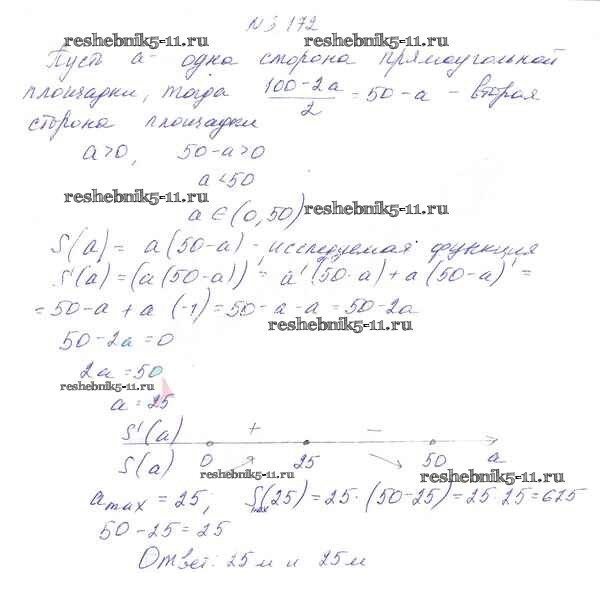 № 3 172
reshebnik5-11.ru reshebnik5-11.ru
Пусть a - одна сторона прямоугольной
площадки, тогда (100-2a)/2 = 50-a - вторая
сторона площадки
a>0, 50-a>0
a<50
reshebnik5-11.ru reshebnik5-11.ru
a ∈ (0, 50)
S(a) = a(50-a) - исследуемая функция
S'(a) = (a(50-a))' = a'(50-a) + a(50-a)' =
= 50-a + a·(-1) = 50-a-a = 50-2a
reshebnik5-11.ru
50-2a=0
2a=50
reshebnik5-11.ru
a=25
S'(a) + −
S(a) 0 25 50 a
reshebnik5-11.ru reshebnik5-11.ru
a max = 25, S max (25) = 25·(50-25) = 25·25 = 625
50-25=25
Ответ: 25 м и 25 м